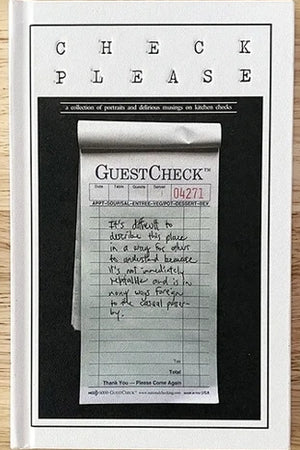 CHECK
PLEASE
a collection of portraits and delirious musings on kitchen checks
GUESTCHECK™
Date Table Guests Server
04271
APPT-SOUP/SAL-ENTREE-VEG/POT-DESSERT-BEV
It's difficult to
describe this place
in a way for others
to understand because
it's not immediately
relatable and is in
many ways foreign
to the casual passer-
by.
Tax
Total
Thank You — Please Come Again
GUESTCHECK™ www.nationalchecking.com MADE IN USA